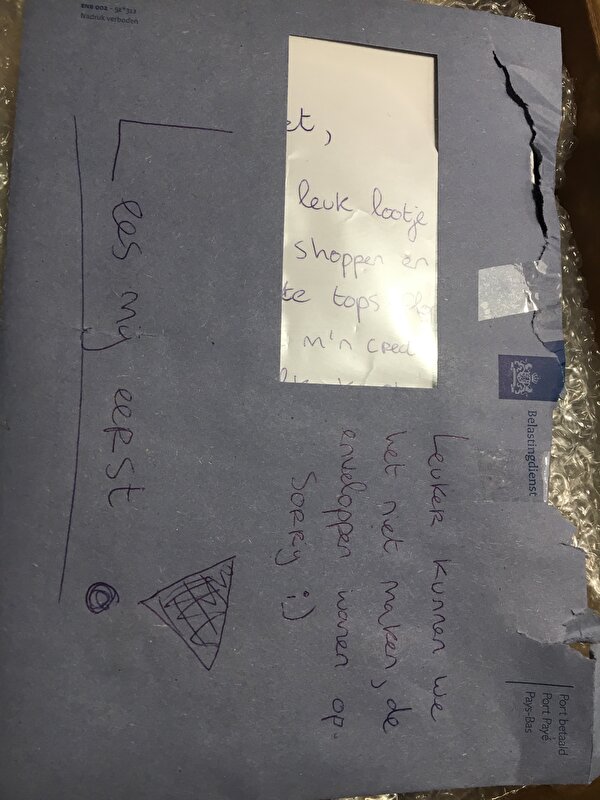 ENB 002 - 5E*312
Nadruk verboden
Belastingdienst
Port betaald
Port Payé
Pays-Bas
et,
leuk lootje
shoppen en
te tops
m'n cred
Leuker kunnen we
het niet maken, de
enveloppen waren op.
Sorry :)
les mij eerst